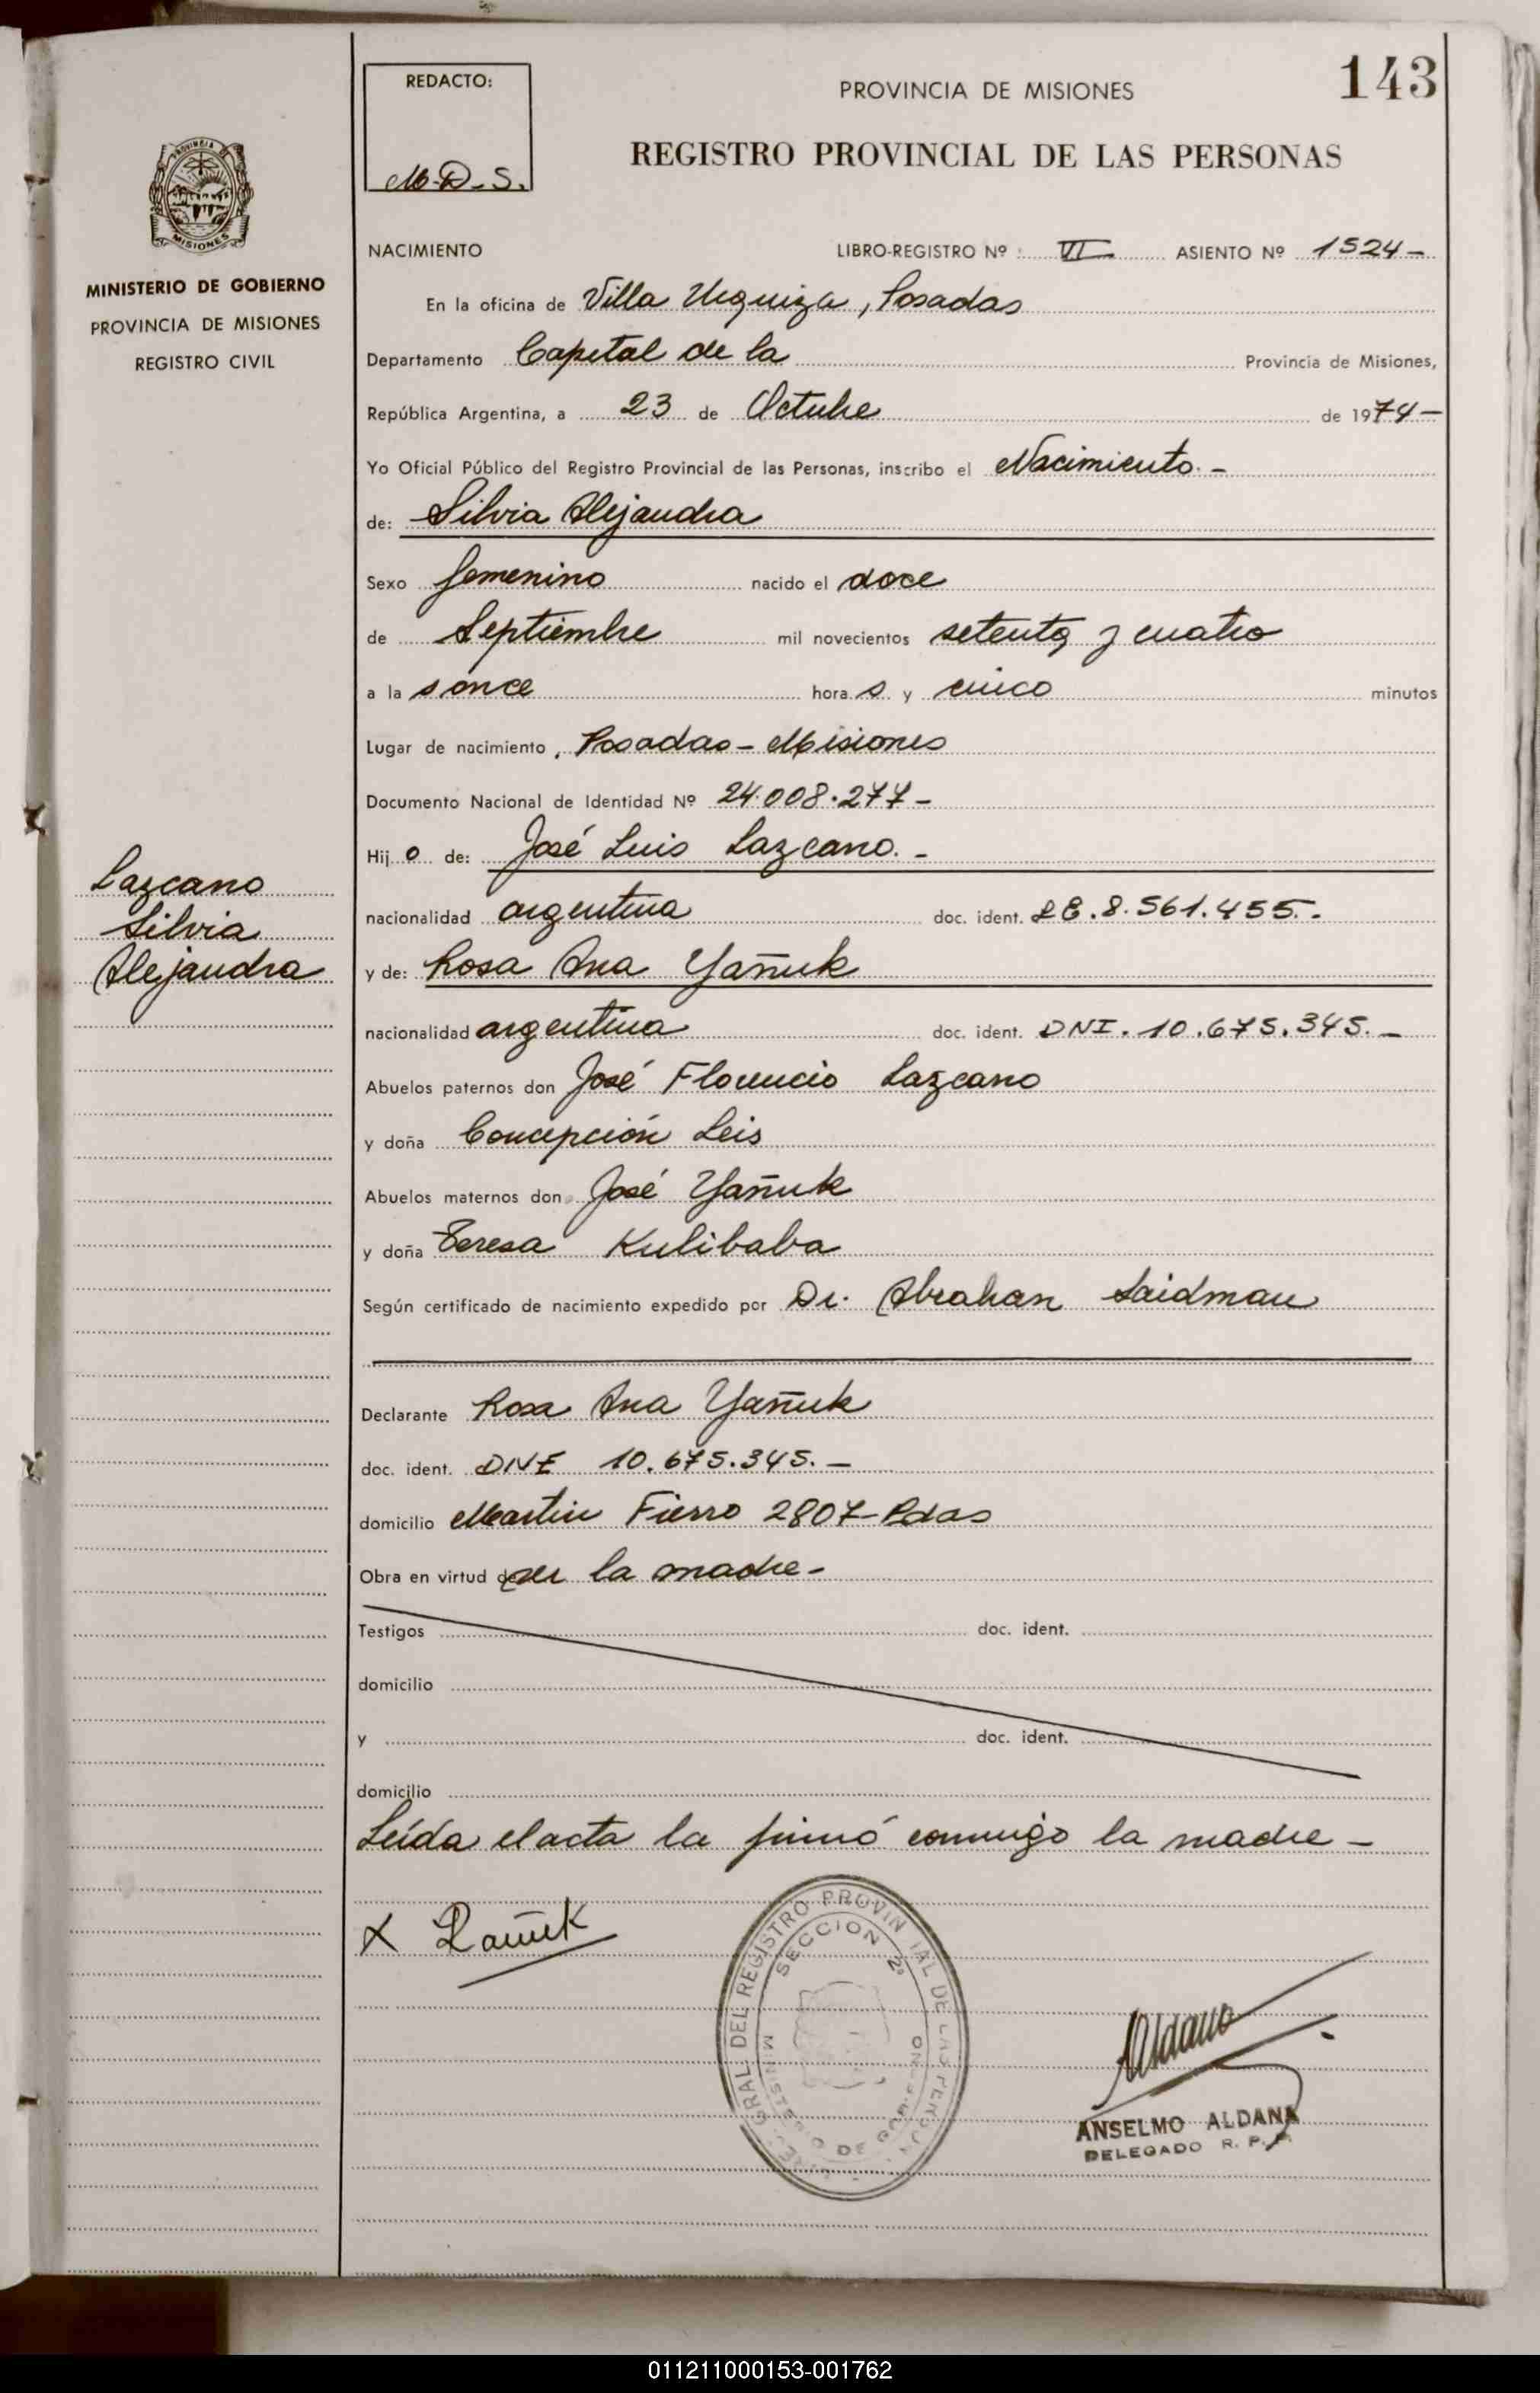 143
REDACTO:
M.D.S.
PROVINCIA DE MISIONES
REGISTRO PROVINCIAL DE LAS PERSONAS
MISIONES
MINISTERIO DE GOBIERNO
PROVINCIA DE MISIONES
REGISTRO CIVIL
NACIMIENTO LIBRO-REGISTRO Nº VI ASIENTO Nº 1524-
En la oficina de Villa Urquiza, Posadas
Departamento Capital de la Provincia de Misiones,
República Argentina, a 23 de Octubre de 1974-
Yo Oficial Público del Registro Provincial de las Personas, inscribo el Nacimiento.-
de: Silvia Alejandra
Sexo femenino nacido el doce
de Septiembre mil novecientos setenta y cuatro
a la s once hora s y cinco minutos
Lugar de nacimiento, Posadas - Misiones
Documento Nacional de Identidad Nº 24.008.277-
Hij o de: José Luis Lazcano.-
Lazcano
Silvia
Alejandra
nacionalidad argentina doc. ident. LE.8.561.455.-
y de: Rosa Ana Yañuk
nacionalidad argentina doc. ident. DNI. 10.675.345.-
Abuelos paternos don José Florencio Lazcano
y doña Concepción Leis
Abuelos maternos don José Yañuk
y doña Teresa Kulibaba
Según certificado de nacimiento expedido por Dr. Abrahan Saidman
Declarante Rosa Ana Yañuk
doc. ident. DNI 10.675.345.-
domicilio Martin Fierro 2807-Pdas
Obra en virtud de ser la madre-
Testigos doc. ident.
domicilio
y doc. ident.
domicilio
Leída el acta la firmó conmigo la madre-
X RYañuk
DIREC. GRAL. DEL REGISTRO PROVINCIAL DE LAS PERSONAS
SECCION 2ª
MINISTERIO DE GOBIERNO
Aldana
ANSELMO ALDANA
DELEGADO R. P. P.
011211000153-001762